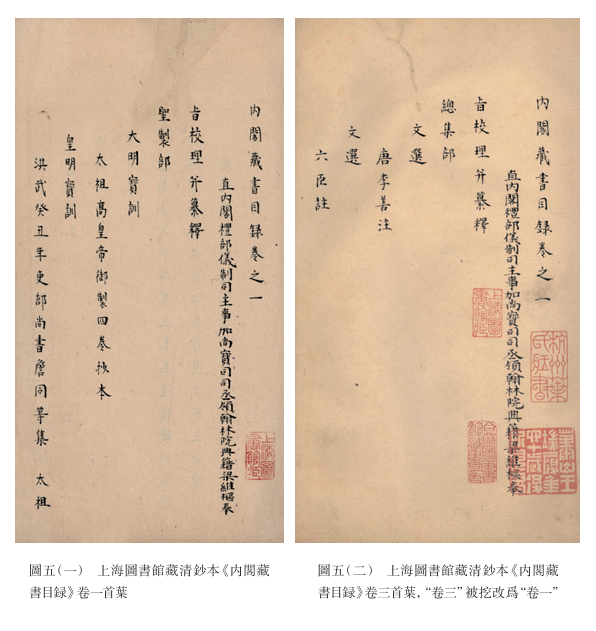 内閣藏書目録卷之一
直内閣禮部儀制司主事加尚寶司司丞領翰林院典籍梁維樞奉
旨校理并纂釋
聖製部
大明寶訓
太祖髙皇帝御製四卷抄本
皇明寶訓
洪武癸丑年吏部尚書詹同等集 太祖
上海圖書館藏
圖五(一) 上海圖書館藏清鈔本《内閣藏
書目録》卷一首葉
内閣藏書目録卷之一
直内閣禮部儀制司主事加尚寶司司丞領翰林院典籍梁維樞奉
旨校理并纂釋
總集部
文選
唐李善注
文選
六臣註
杭州葉氏藏書
上海圖書館藏
圖五(二) 上海圖書館藏清鈔本《内閣藏
書目録》卷三首葉，“卷三”被挖改爲“卷一”